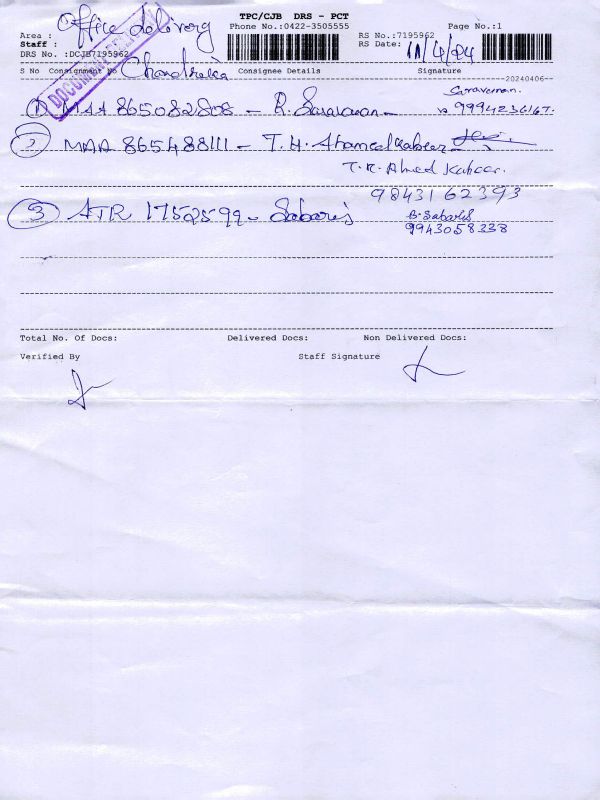 TPC/CJB DRS - PCT
Phone No.:0422-3505555
Page No.:1
Office delivery
Area :
RS No.:7195962
Staff :
RS Date: 11/4/24
DRS No. :DCJB7195962
DOCUMENT
S No Consignment No Chandrika Consignee Details Signature
20240406
Saravanan.
① MAA 865082808 - R. Saravanan - 9994236167.
② MAA 865488111 - T. H. Ahamed Kabeer -
T. K. Ahmed Kabeer.
9843162393
③ ATR 1752599 - Sabaris
B. Sabaris
9943058338
Total No. Of Docs: Delivered Docs: Non Delivered Docs:
Verified By Staff Signature